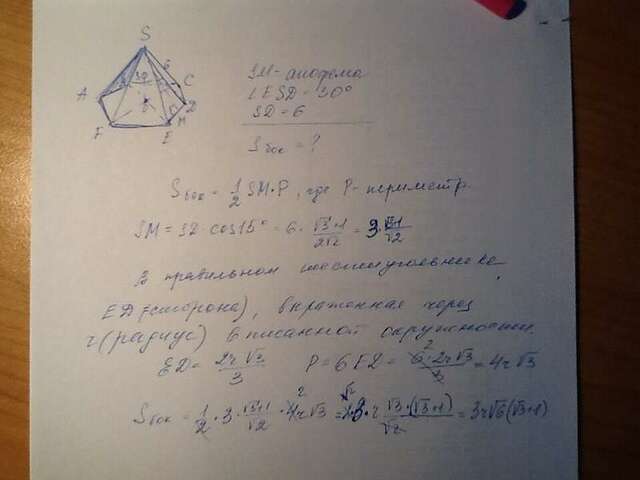 S
A B C D E F M
6
SM - апофема
∠ESD = 30°
SD = 6
Sбок = ?
Sбок = 1/2 SM · P, где P - периметр.
SM = SD · cos15° = 6 · (√3+1)/(2√2) = 3 · (√3+1)/√2
В правильном шестиугольнике
ED (сторона), выраженная через
r (радиус) вписанной окружности
ED = 2r√3/3 P = 6ED = 6·2r√3/3 = 4r√3
Sбок = 1/2 · 3 · (√3+1)/√2 · 4r√3 = 3 · r √3 · (√3+1)/√2 = 3r√6(√3+1)